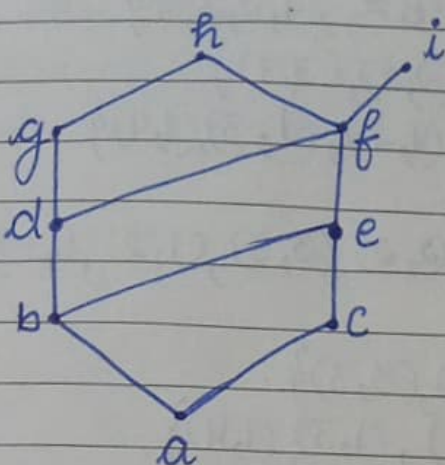 h
i
g
f
d
e
b
c
a